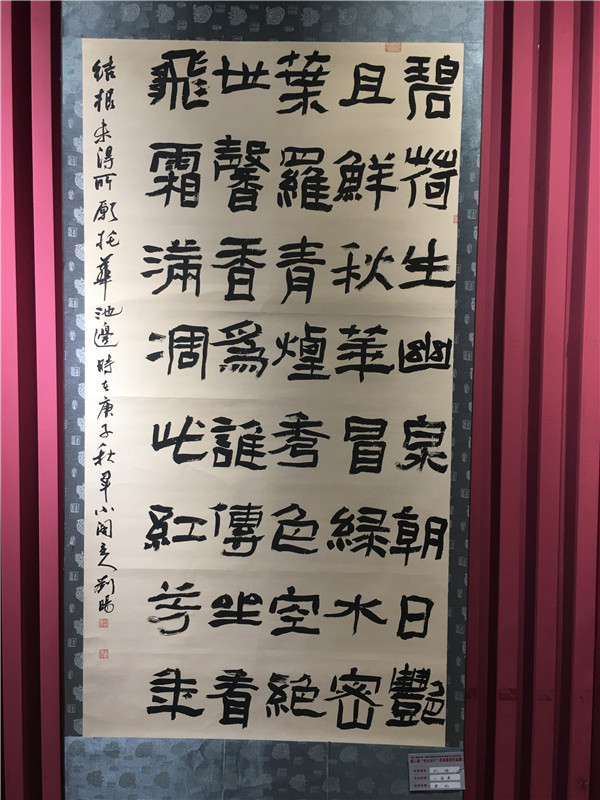 碧荷生幽泉朝日艷
且鮮秋華冒綠水密
葉羅青煙秀色空絕
世馨香爲誰傳坐看
飛霜滿凋此紅芳年
結根未得所願托華池邊時在庚子秋小閑主人劉陽